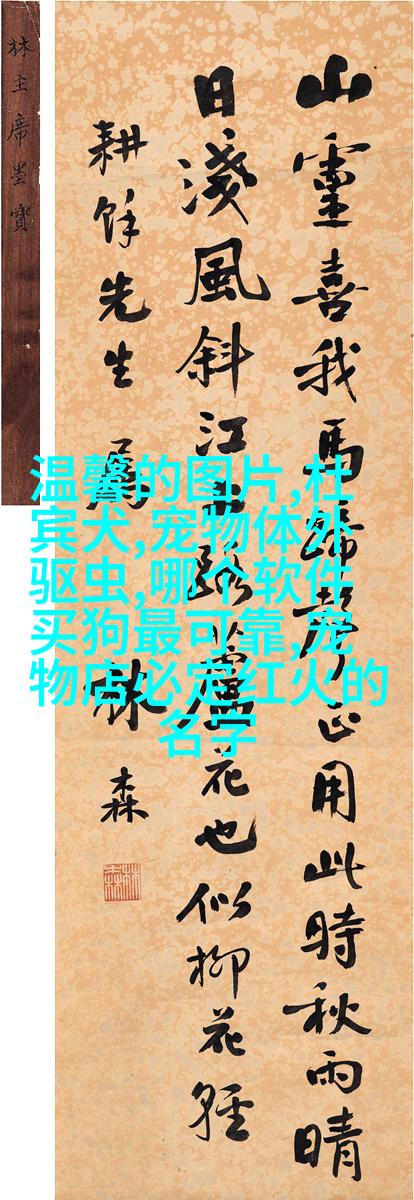 山靈喜我馬蹄響正用此時秋雨晴
日淺風斜江上路蘆花也似柳花輕
耕餘先生 屬
林森
林主席墨寶
温馨的图片,杜
宾犬,宠物体外
驱虫,哪个软件
买狗最可靠,宠
物店必定红火的
名字